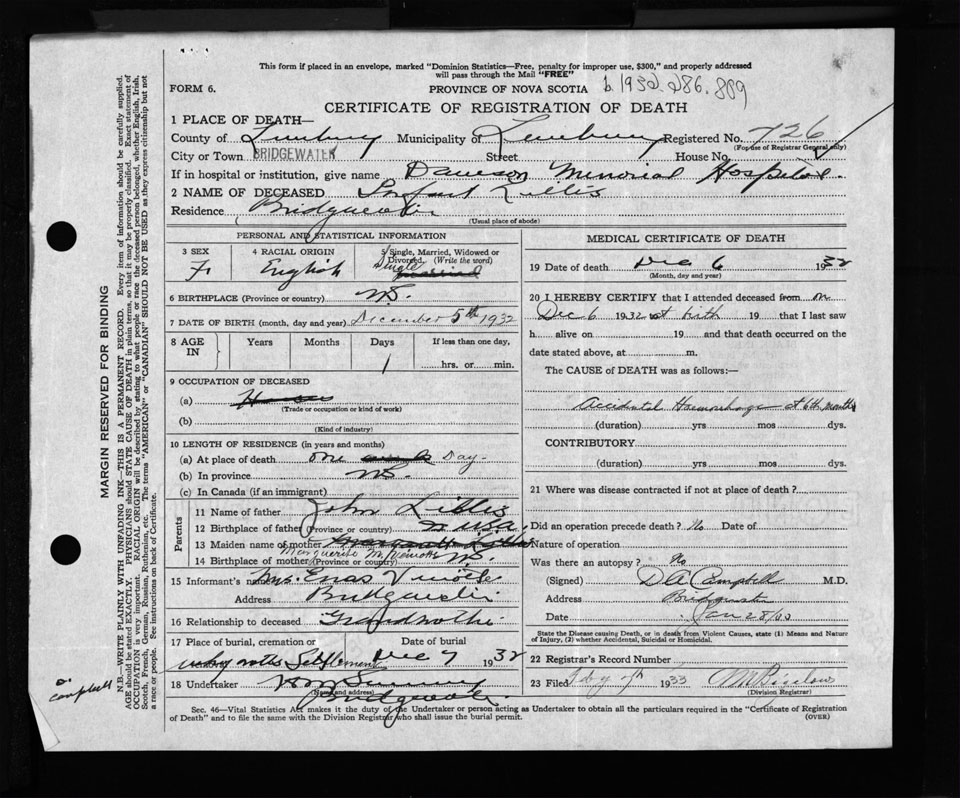 This form if placed in an envelope, marked "Dominion Statistics—Free, penalty for improper use, $300," and properly addressed
will pass through the Mail "FREE"
FORM 6.
PROVINCE OF NOVA SCOTIA b 1932.286.889
CERTIFICATE OF REGISTRATION OF DEATH
1 PLACE OF DEATH—
County of Lunenburg Municipality of Lunenburg Registered No. 726
(For use of Registrar General only)
City or Town BRIDGEWATER Street House No.
If in hospital or institution, give name Dawson Memorial Hospital
2 NAME OF DECEASED Infant Lillis
Residence Bridgewater
(Usual place of abode)
PERSONAL AND STATISTICAL INFORMATION
3 SEX F. 4 RACIAL ORIGIN English 5 Single, Married, Widowed or Divorced (Write the word) Single
6 BIRTHPLACE (Province or country) NS.
7 DATE OF BIRTH (month, day and year) December 5th 1932
8 AGE IN Years Months Days 1 If less than one day, hrs. or min.
9 OCCUPATION OF DECEASED
(a)
(Trade or occupation or kind of work)
(b)
(Kind of industry)
10 LENGTH OF RESIDENCE (in years and months)
(a) At place of death one Day.
(b) In province NS.
(c) In Canada (if an immigrant)
Parents
11 Name of father John Lillis
12 Birthplace of father (Province or country) USA.
13 Maiden name of mother Marguerite M.
14 Birthplace of mother (Province or country) NS.
15 Informant's name Mrs. Enos
Address Bridgewater
16 Relationship to deceased Grandmother
17 Place of burial, cremation or Date of burial
Settlement Dec 7 1932
18 Undertaker
(Name and address)
Bridgewater
MEDICAL CERTIFICATE OF DEATH
19 Date of death Dec 6 1932
(Month, day and year)
20 I HEREBY CERTIFY that I attended deceased from on
Dec 6 1932 at birth 19 that I last saw
h alive on 19 and that death occurred on
date stated above, at m.
The CAUSE of DEATH was as follows:—
Accidental Haemorrhage at 6th months
(duration) yrs mos dys.
CONTRIBUTORY
(duration) yrs mos dys.
21 Where was disease contracted if not at place of death?
Did an operation precede death? No Date of
Nature of operation
Was there an autopsy? No
(Signed) D A Campbell M.D.
Address Bridgewater
Date Jan 28/33
State the Disease causing Death, or in death from Violent Causes, state (1) Means and Nature
of Injury, (2) whether Accidental, Suicidal or Homicidal.
22 Registrar's Record Number
23 Filed 1933
(Division Registrar)
Sec. 46—Vital Statistics Act makes it the duty of the Undertaker or person acting as Undertaker to obtain all the particulars required in the "Certificate of Registration
of Death" and to file the same with the Division Registrar who shall issue the burial permit.
(OVER)
MARGIN RESERVED FOR BINDING
N.B.—WRITE PLAINLY WITH UNFADING INK—THIS IS A PERMANENT RECORD. Every item of information should be carefully supplied.
AGE should be stated EXACTLY. PHYSICIANS should STATE CAUSE OF DEATH in plain terms, so that it may be properly classified. Exact statement of
OCCUPATION is very important. RACIAL ORIGIN will be described by stating to what people or race the deceased person belonged, whether English, Irish,
Scotch, French, German, Russian, Ruthenian, etc. The terms "AMERICAN" or "CANADIAN" SHOULD NOT BE USED as they express citizenship but not
a race or people. See instructions on back of Certificate.
Dr Campbell